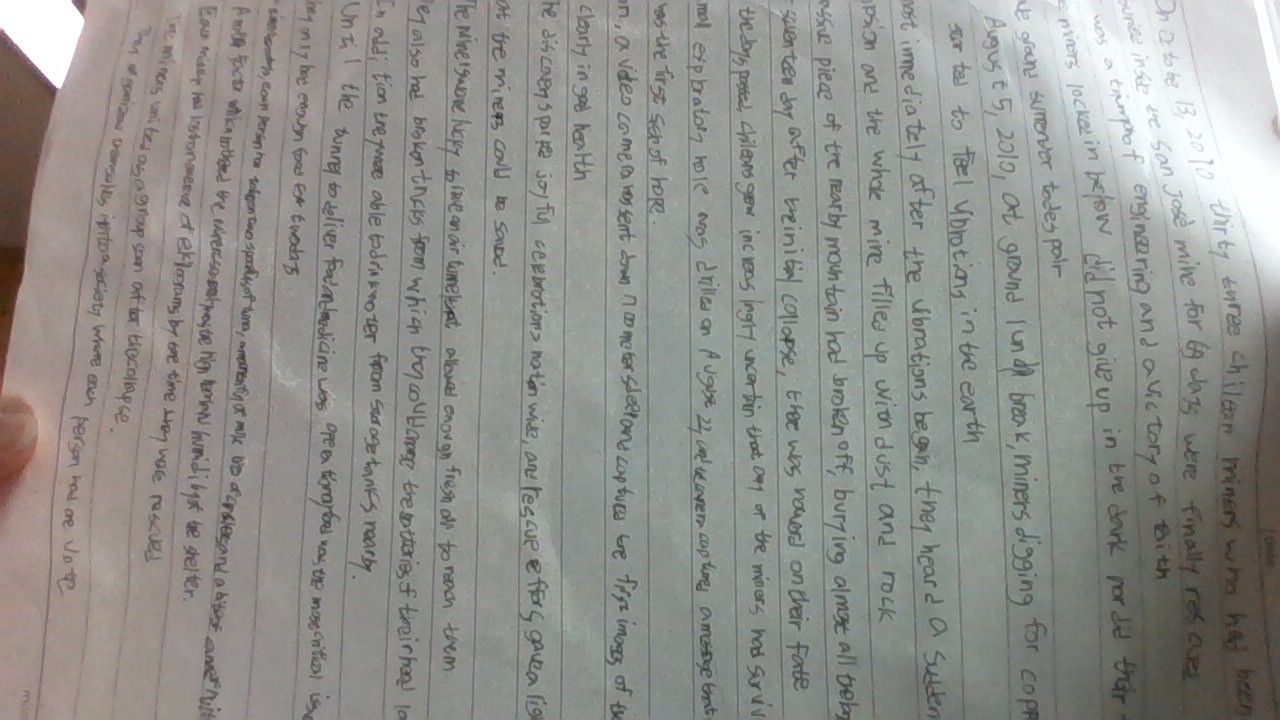 On octobe 13, 2010 thirty three chilean miners who had been
buried inside the San José mine for 69 days were finally rescued
was a triumph of engineering and a victory of faith
e miners locked in below did not give up in the dark nor did their
ve ground surrender to despair
August 5, 2010, at ground lunch break, miners digging for copp
started to feel vibrations in the earth
most immediately after the vibrations began, they heard a sudden
losion and the whole mine filled up with dust and rock
assive piece of the nearby mountain had broken off, burying almost all the
seventeen day after the initial collapse, there was no word on their fate
the days passed, chileans grew increasingly uncertain that any of the miners had surviv
mal exploratory hole was drilled on August 22, and the camera captured a message that
was the first sign of hope.
on, a video camera was sent down 700 meters deep and captured the first images of the
clearly in good health
The discovery sparked joyful celebrations nation wide, and rescue efforts gave a lig
at the miners could be saved.
The miners were lucky to have an air tunnel that allowed enough fresh air to reach them
ey also had broken trucks from which they could charge the batteries of their head la
In addition they were able to drink water from storage tanks nearby.
Until the tunnel to deliver food and medicine was operational food was the most critical issue
hey only had enough food for two days
each person had two spoonfuls of tuna, a mouthful of milk bits of crackers and a bite of
Another factor which the miners most was the high humidity of the shelter.
Each miner has lost on average of 8 kilograms by the time they were rescued
The miners united as a group soon after the collapse.
They organized themselves into a society where each person had one vote